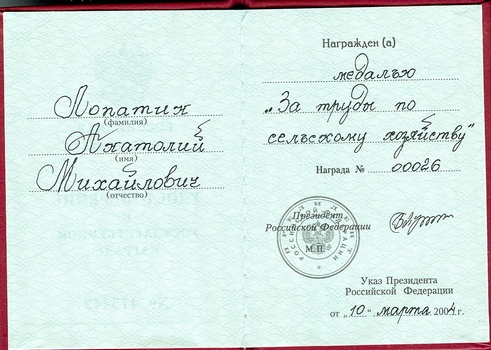 Лопатин
(фамилия)
Анатолий
(имя)
Михайлович
(отчество)
Награжден (а)
медалью
„За труды по
сельскому хозяйству"
Награда № 00026
Президент
Российской Федерации
М.П.
Указ Президента
Российской Федерации
от „10" марта 2004 г.